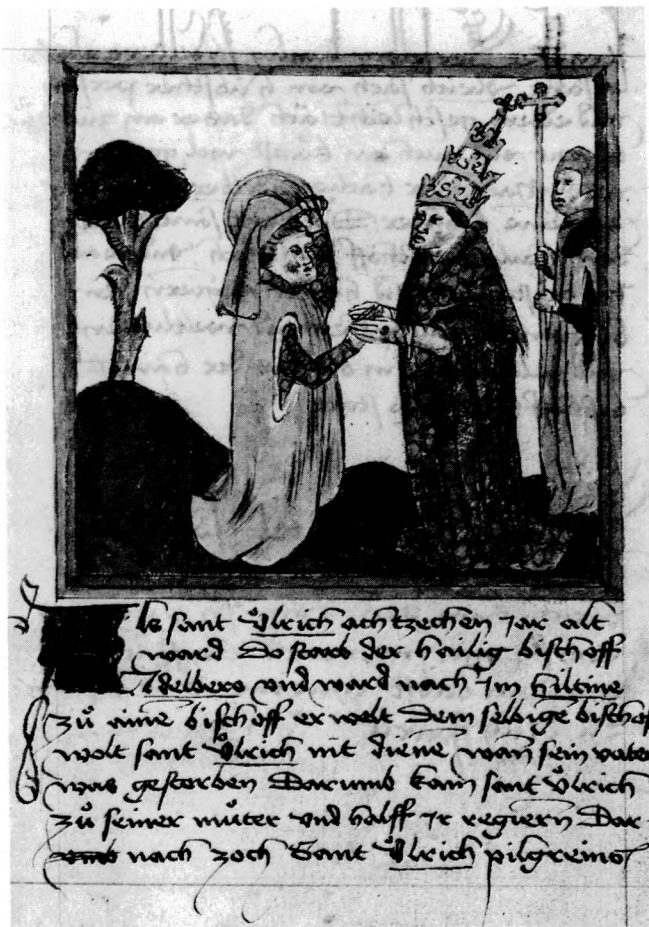 Als sant Ůlrich achtzechen jar alt
ward Do starb der hailig bischoff
Adelbero vnd ward nach jm hiltine
zů aine bischoff er welt Dem selbige bischof
wolt sant Ůlrich nit diene wan sein vater
was gestorben Darumb kam sant Ůlrich
zů seiner můter vnd halff jr regiern Dar-
nach zoch Sant Ůlrich pilgreins